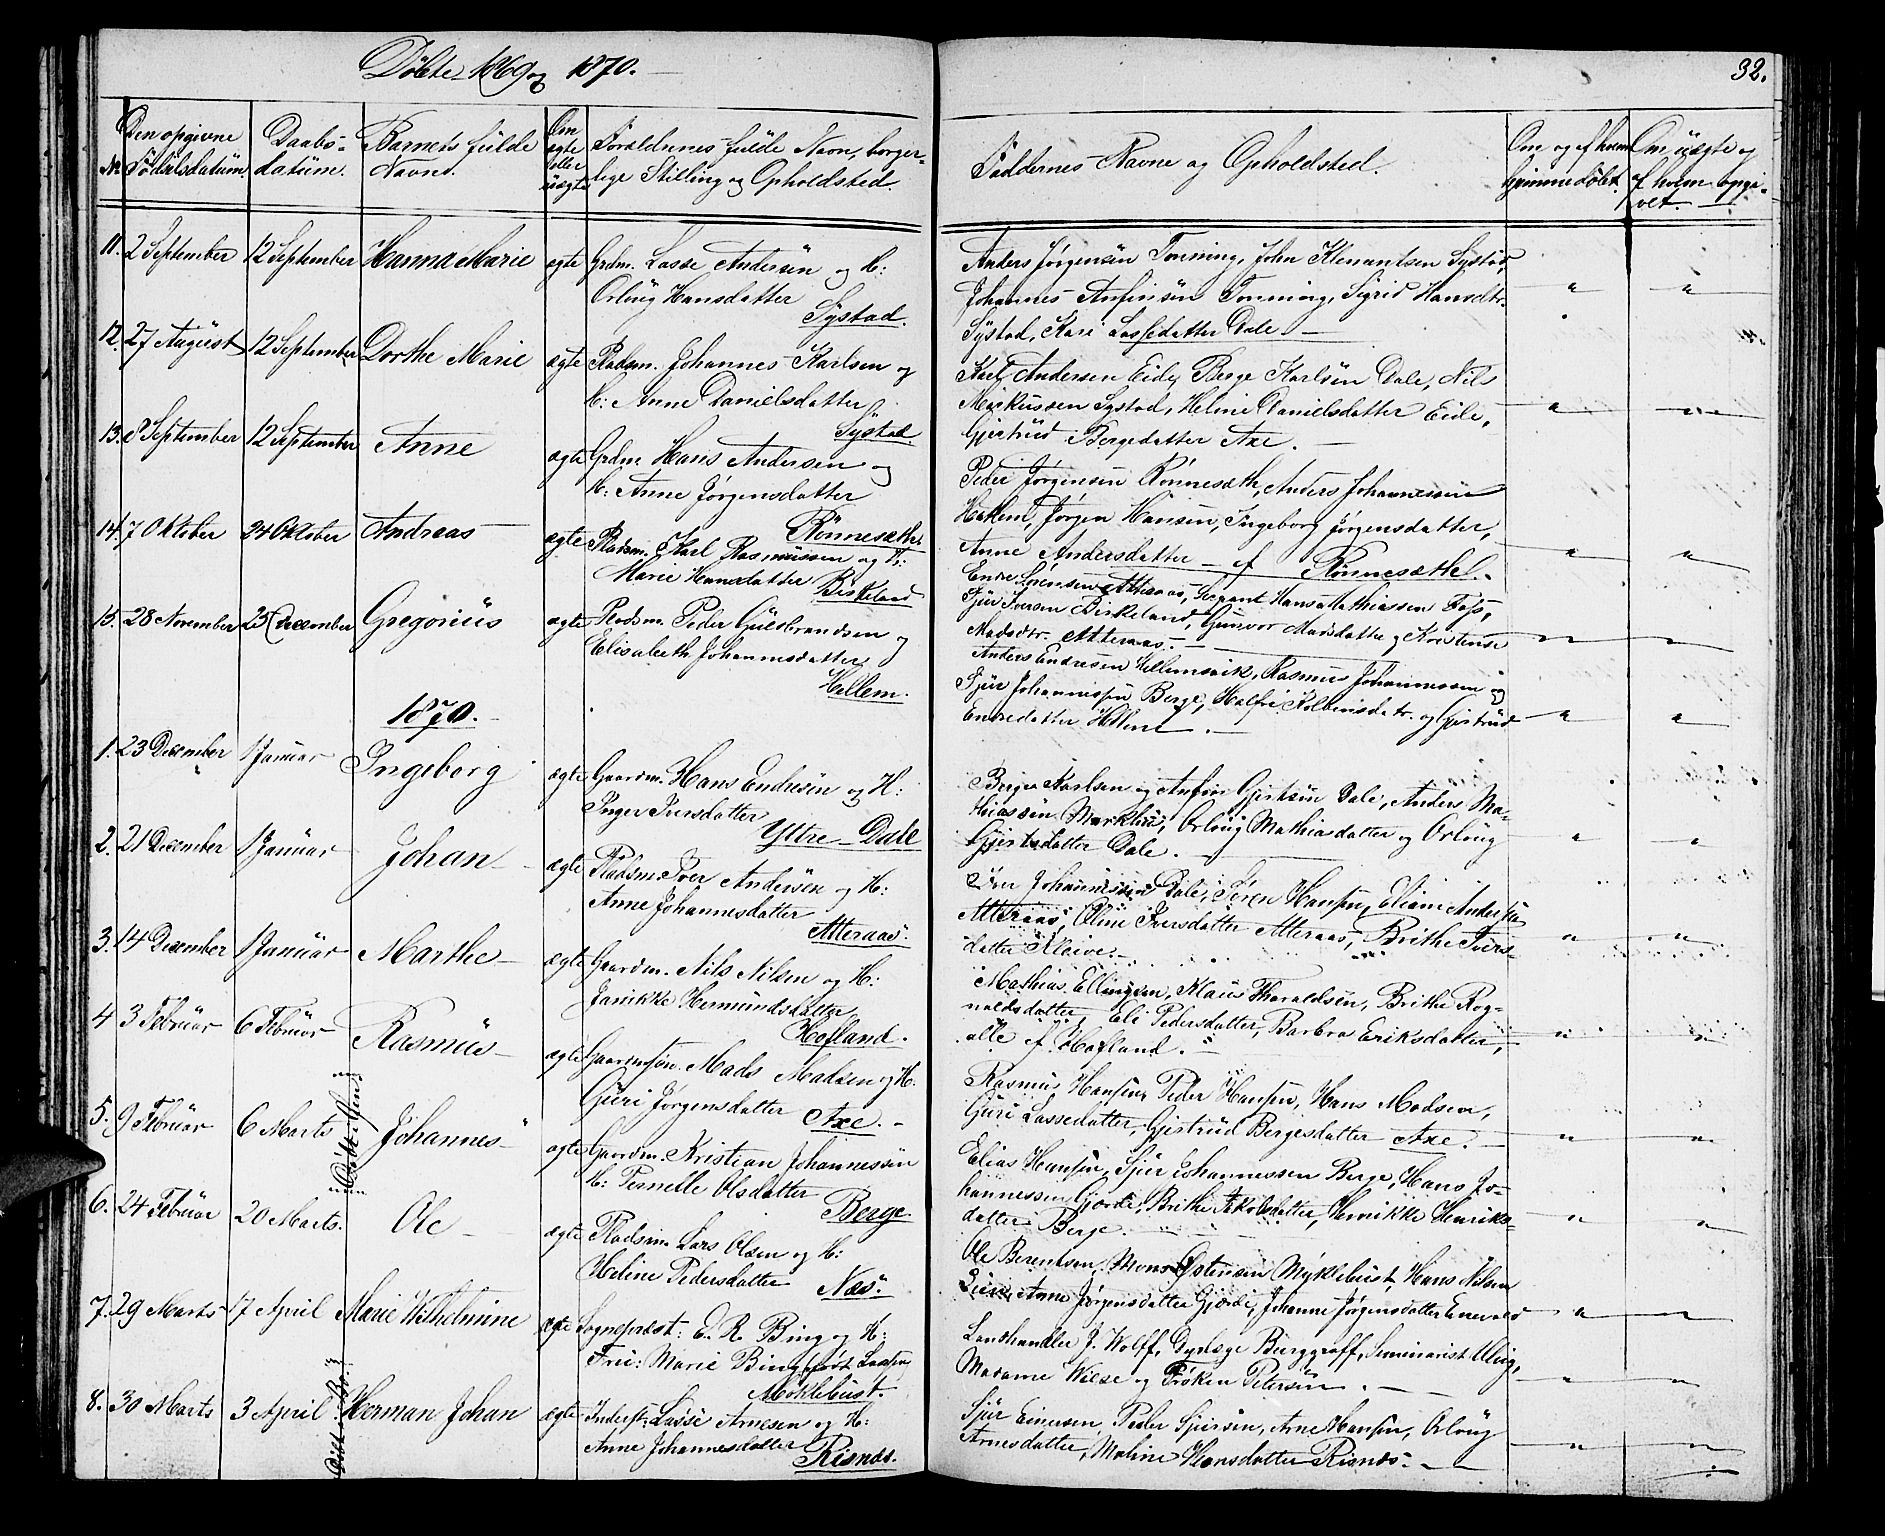 Döbte 1869 og 1870.
32.
No
Den opgivne Födselsdatum
Daabs-datum.
Barnets fulde Navne.
Om ægte eller uægte
Forældrenes fulde Navn, borger-
lige Stilling og Opholdsted.
Faddernes Navne og Opholdsted.
Om og af hvem hjemmedöbt.
Om uægte og af hvem opgi-
vet.
11. 2 September 12 September Hanna Marie ægte Grdm. Lasse Andersen og H:
Orlöug Hansdatter
Systad.
Anders Jørgensen Tonning, John Klemantsen Systad,
Johannes Anfinsen Tonning, Sigrid Hansdtr.
Systad, Kari Lassedatter Dale
12. 27 August 12 September Dorthe Marie ægte Pladsm. Johannes Karlsen og
H: Anne Danielsdatter
Systad
Karl Andersen Eide, Berge Karlsen Dale, Nils
Markussen Systad, Heline Danielsdatter Eide,
Gjertrud Bergesdatter Axe.
13. 8 September 12 September Anne ægte Grdm. Hans Andersen og
H: Anne Jørgensdatter
Rönnesæthe.
Peder Jørgensen Rönnesæth, Anders Johannessen
Hellem, Jørgen Hansen, Ingeborg Jørgensdatter,
Anne Andersdatter af Rönnesæthe.
14. 7 Oktober 24 Oktober Andreas ægte Pladsm. Karl Rasmussen og H:
Marie Hansdatter Birkeland
Endre Sörensen Atteraas, Sergeant Hans Mathiassen Foss,
Sjur Iversen Birkeland, Gunvor Madsdatter og Kirstense
Madsdtr. Atteraas.
15. 28 November 25 December Gregorius ægte Pladsm. Peder Gulbrandsen og
Elisabeth Johannesdatter
Hellem.
Anders Endresen Hellemsvik, Rasmus Johannessen og
Sjur Johannessen Berge, Kolbeinsdatr. og Gjertrud
Endredatter Hellem.
1870.
1. 23 December 1 Januar Ingeborg ægte Gaardm. Hans Endresen og H:
Inger Iversdatter
Yttre Dale
Berge Karlsen og Anfin Gjertsen Dale, Anders Ma-
thiassen Marklui, Orloug Mathiasdatter og Orloug
Gjertsdatter Dale.
2. 21 December 1 Januar Johan ægte Pladsm. Iver Andersen og H:
Anne Johannesdatter
Atteraas.
Iver Johannessen Dale, Sören Hansen, Andersen
Atteraas, Oline Iversdatter Atteraas, Brithe Ivers-
datter Kleive.
3. 14 December 1 Januar Marthe ægte Gaardm. Nils Nilsen og H:
Janikke Hermundsdatter
Hofland.
Mathias Ellingsen, Klaus Tharaldsen, Brithe Rog-
naldsdatter, Eli Pedersdatter, Barbra Eriksdatter,
alle af Hofland.
4 3 Februar 6 Februar Rasmus ægte Gaardmsøn. Mads Madsen og H.
Guri Jørgensdatter Axe.
Rasmus Hansen, Peder Hansen, Hans Madsen,
Guri Lassedatter, Gjertrud Bergesdatter Axe.
5. 9 Februar 6 Marts Johannes ægte Gaardm. Kristian Johannessen
H: Pernelle Olsdatter
Berge.
Elias Hansen, Sjur Johannessen Berge, Hans Jo-
hannessen Gjorde, Brithe Jakobsdatter, Henrikke Henriks-
datter Berge.
6. 24 Februar 20 Marts. Ole ægte Pladsm. Lars Olsen og H:
Heline Pedersdatter Næs.
Ole Berentsen, Mons Østensen Myklebust, Hans Nilsen
Anne Jørgensdatter Gjorde, Johanne Jørgensdatter
7. 29 Marts 17 April Marie Wilhelmine ægte Sognepræst: E. R. Bing og H:
Frue: Marie Bing född Laasen
Möklebust.
Landhandler J. Wolff, Dyrlæge Burggraff, Seminarist
Madame Wiese og Fröken Petersen.
8. 30 Marts 3 April Herman Johan ægte Inderst: Lasse Arnesen og H:
Anne Johannesdatter
Risnæs.
Sjur Einersen, Peder Sjursen, Arne Hansen, Orloug
Arnesdatter, Maline Hansdatter Risnæs.